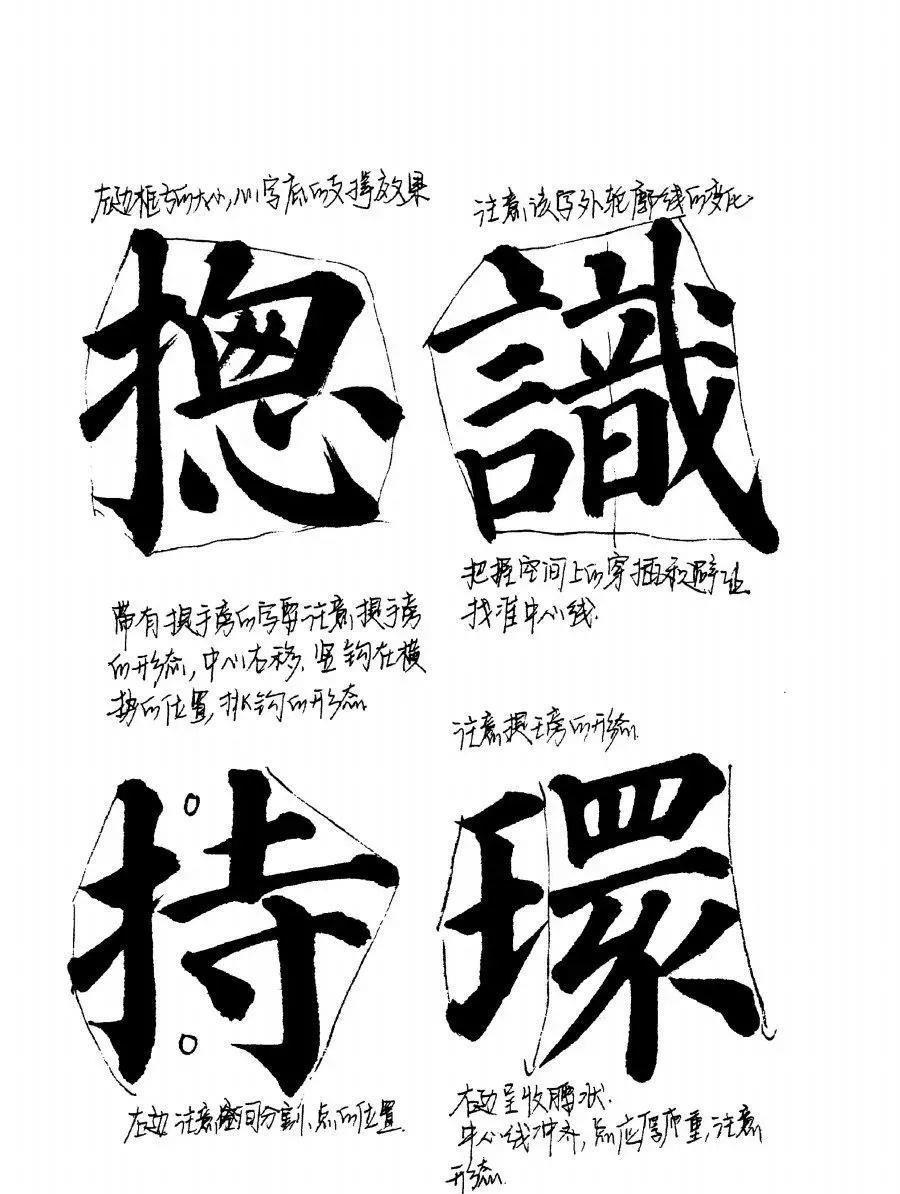 左边框方的大小,心字底的支撑效果
注意该字外轮廓线的变化
揔識
把握空间上的穿插和避让
找准中心线.
带有提手旁的字要注意提手旁
的形态,中心右移.竖钩在横
势的位置,挑钩的形态
注意提王旁的形态
持環
右边注意空间分割、点的位置.
右边呈收腰状.
中心线冲齐,点应厚而重,注意
形态.